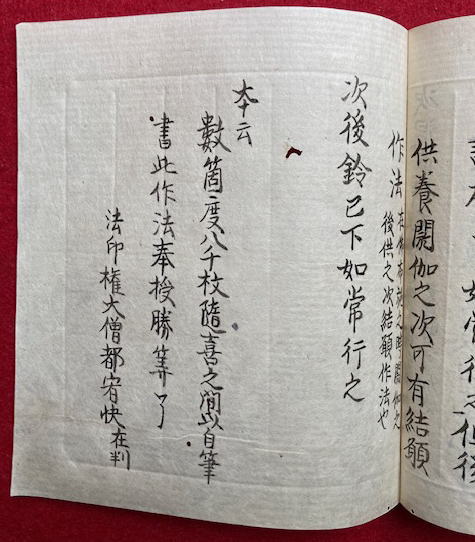 如常行之但後
供養閼伽之次可有結願
作法
之時閼伽之
後供之次結願作法也
次後鈴已下如常行之
本云
數箇度八千枚隨喜之間以自筆
書此作法奉授勝筭了
法印権大僧都宥快在判